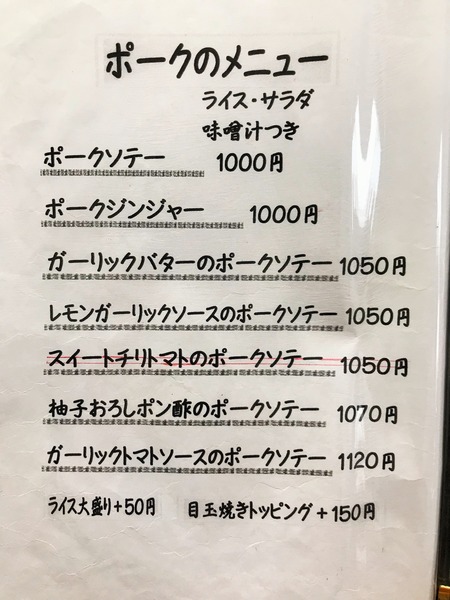 ポークのメニュー
ライス・サラダ
味噌汁つき
ポークソテー 1000円
ポークジンジャー 1000円
ガーリックバターのポークソテー 1050円
レモンガーリックソースのポークソテー 1050円
スイートチリトマトのポークソテー 1050円
柚子おろしポン酢のポークソテー 1070円
ガーリックトマトソースのポークソテー 1120円
ライス大盛り+50円 目玉焼きトッピング+150円